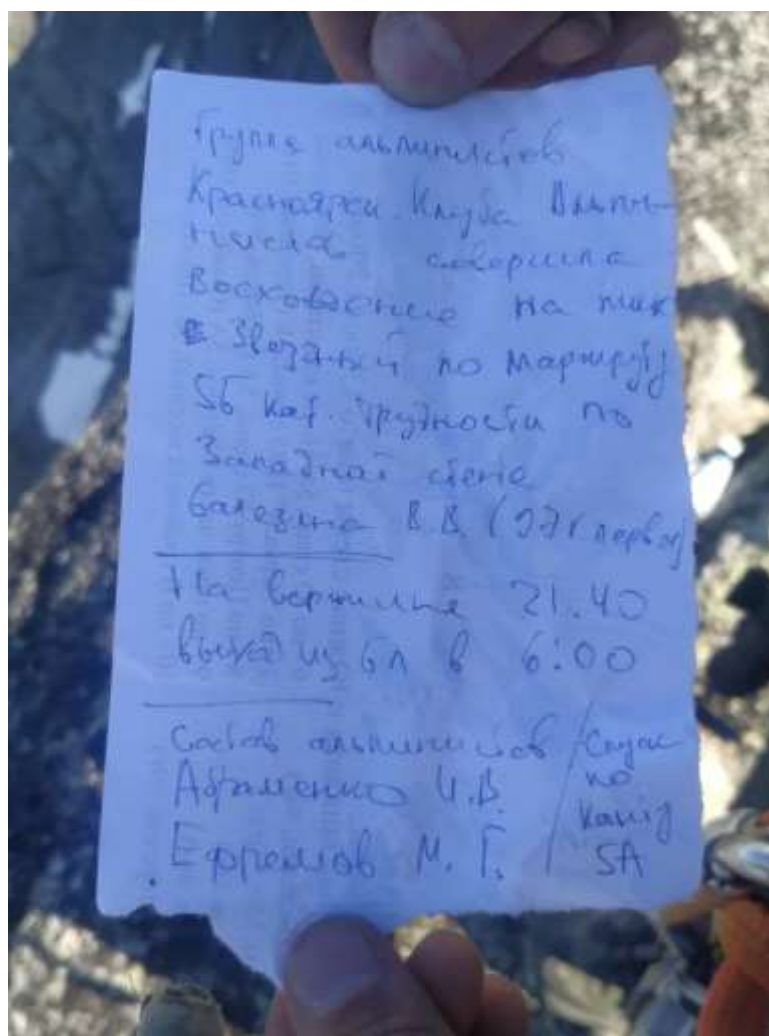 Группа альпинистов
Красноярск. Клуба Альпи-
низма совершила
Восхождение на пик
Звездный по маршруту
5Б кат. трудности по
Западной стене
Балезина В.В. (97г
На вершине 21.40
выход из бл в 6:00
Состав альпинистов / Спуск
Абраменко И.В. по
Ефремов М.Г. 5А